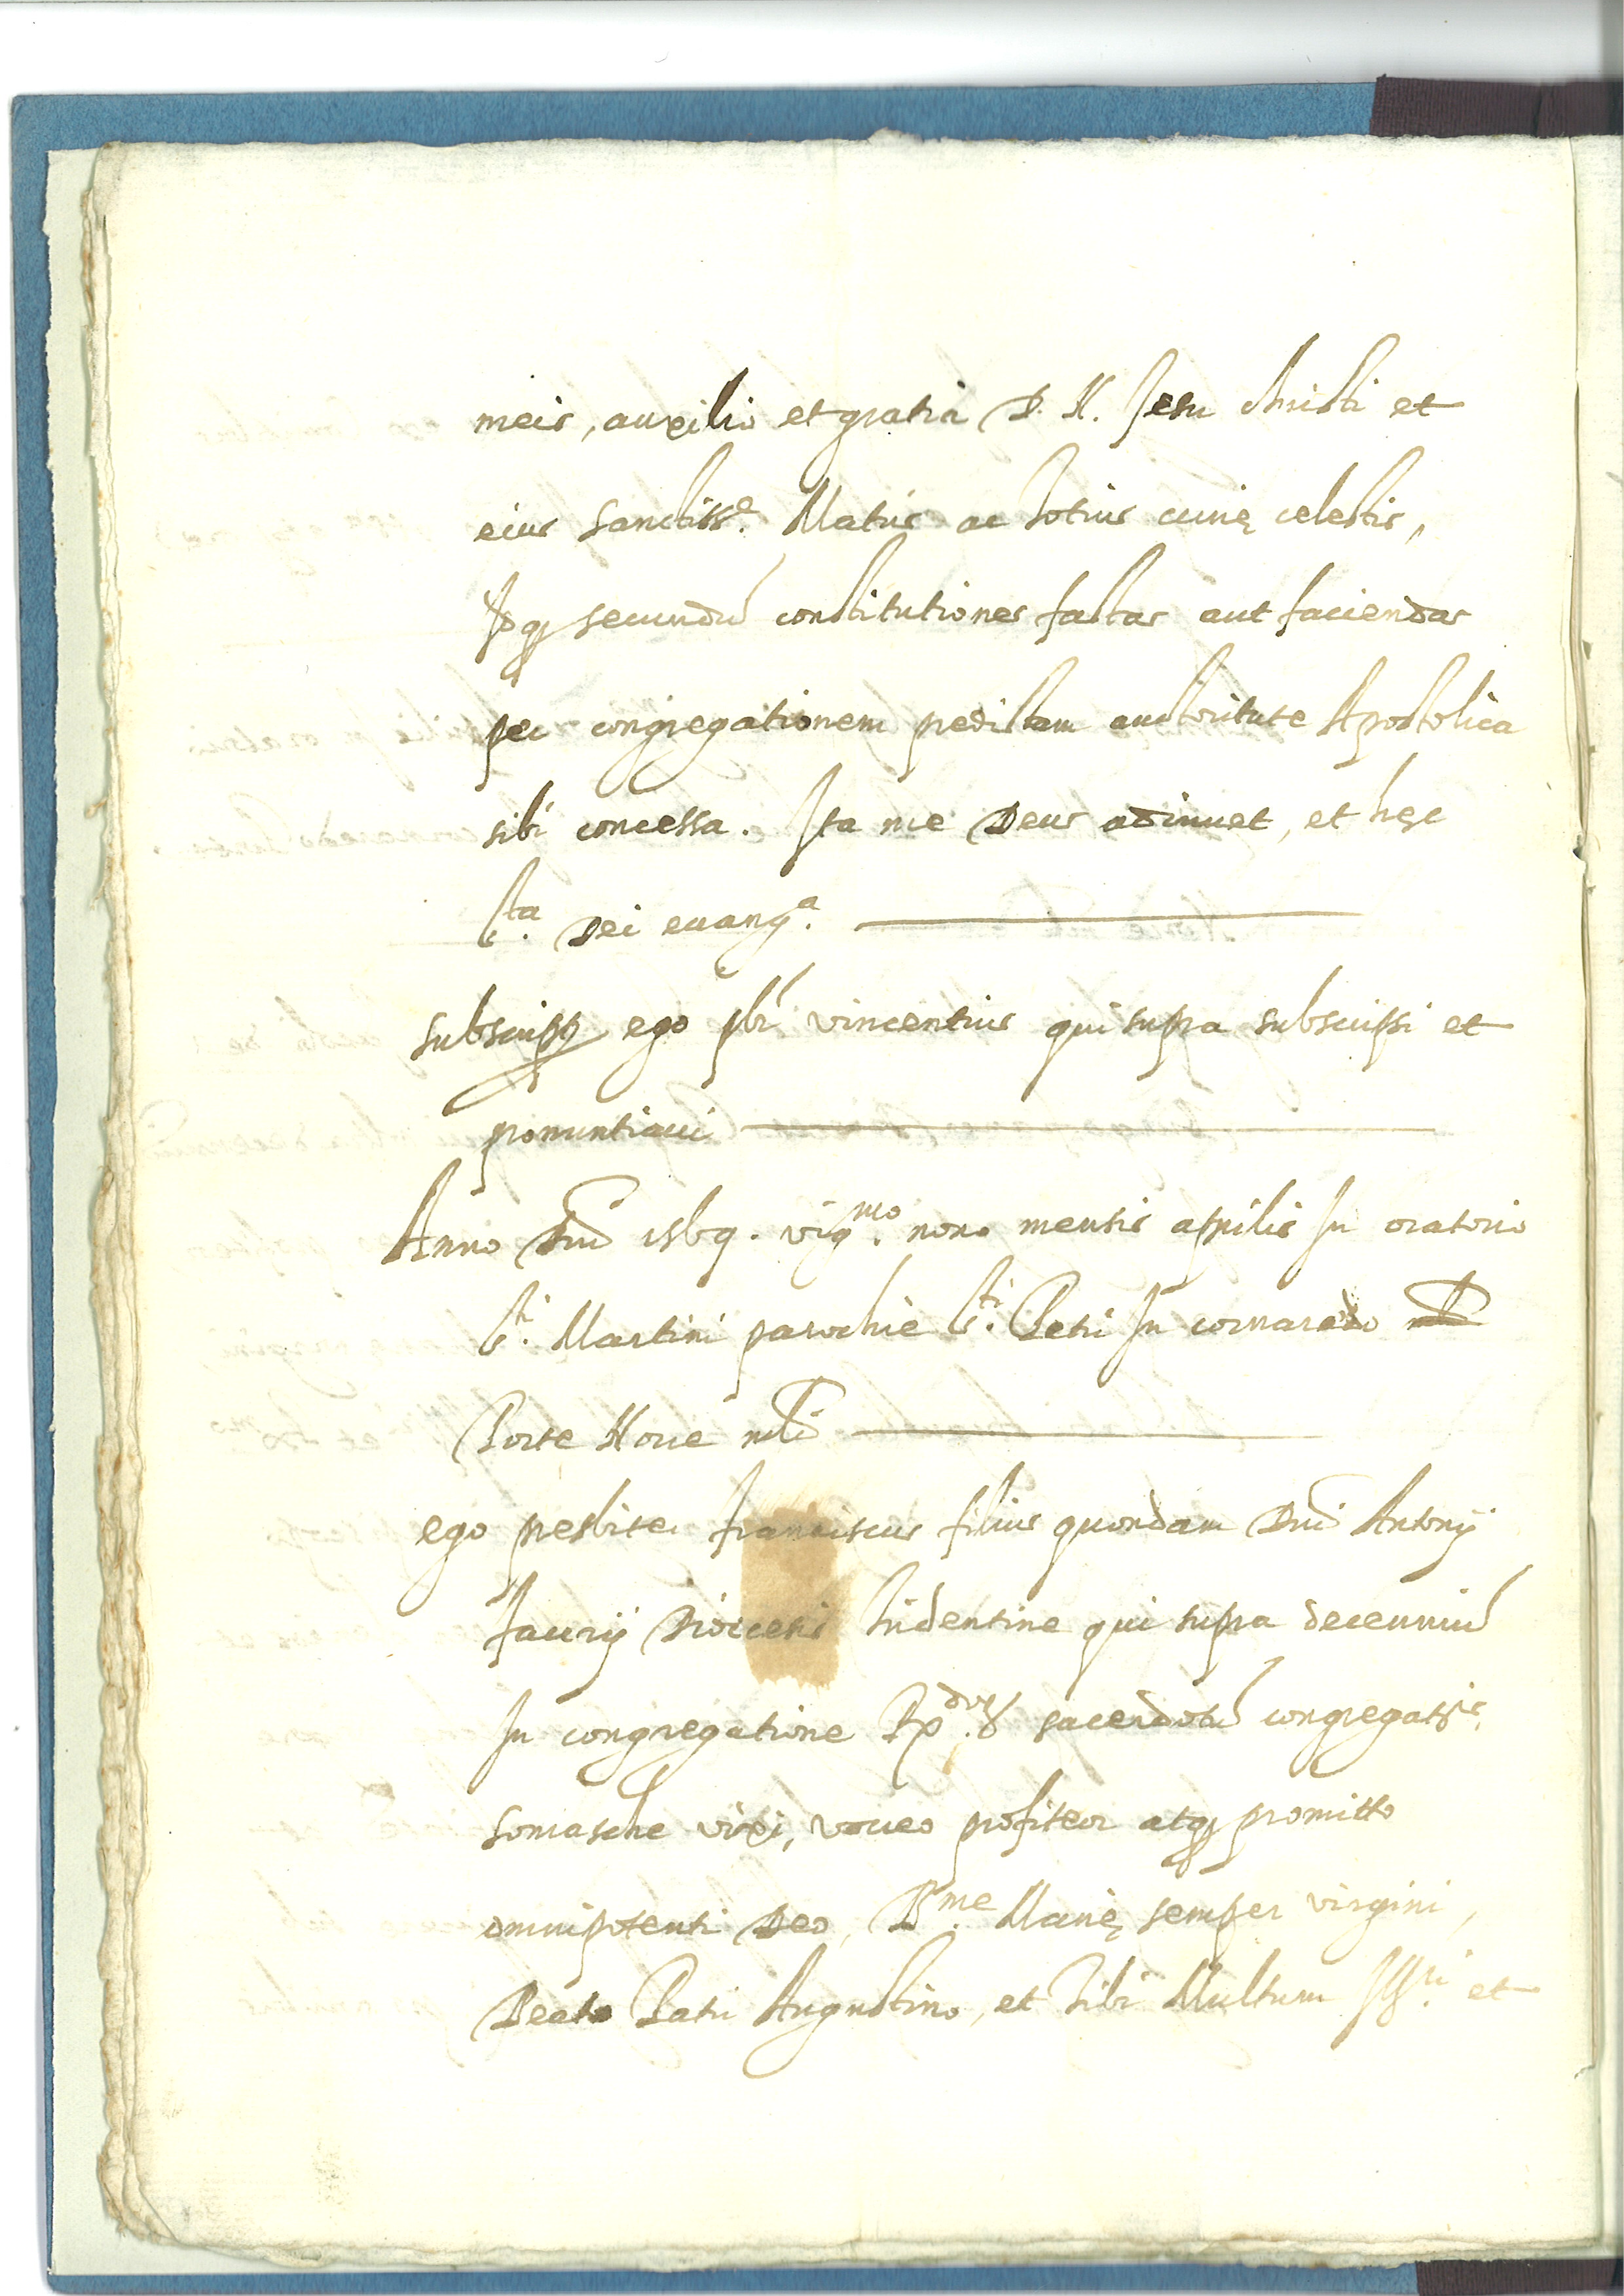 meis, auxilio et gratia D. N. Jesu christi et
eius sanctiss.e Matris ac totius curię celestis,
Idq; secundū constitutiones factas aut faciendas
per congregationem predictam auctoritate Apostolica
sibi concessa. Ita me Deus adiuuet, et hęc
S.ta Dei euang.a
subscrip. ego pbr vincentius qui supra subscripsi et
pronuntiaui
Anno Dnī 1569. vig.mo nono mensis aprilis In oratorio
S.ti Martini parochie S.ti Petri In cornaredo
Porte Noue mli
ego presbiter franciscus filius quondam Dnī Antonij
Diocesis tridentine qui supra decenniū
In congregatione sacerdotū congregat.is
somasche vixi, voueo profiteor atq; promitto
omnipotenti Deo, B.me Marię semper virgini,
Beato Patri Augustino, et tibi Multum Ill.ri et